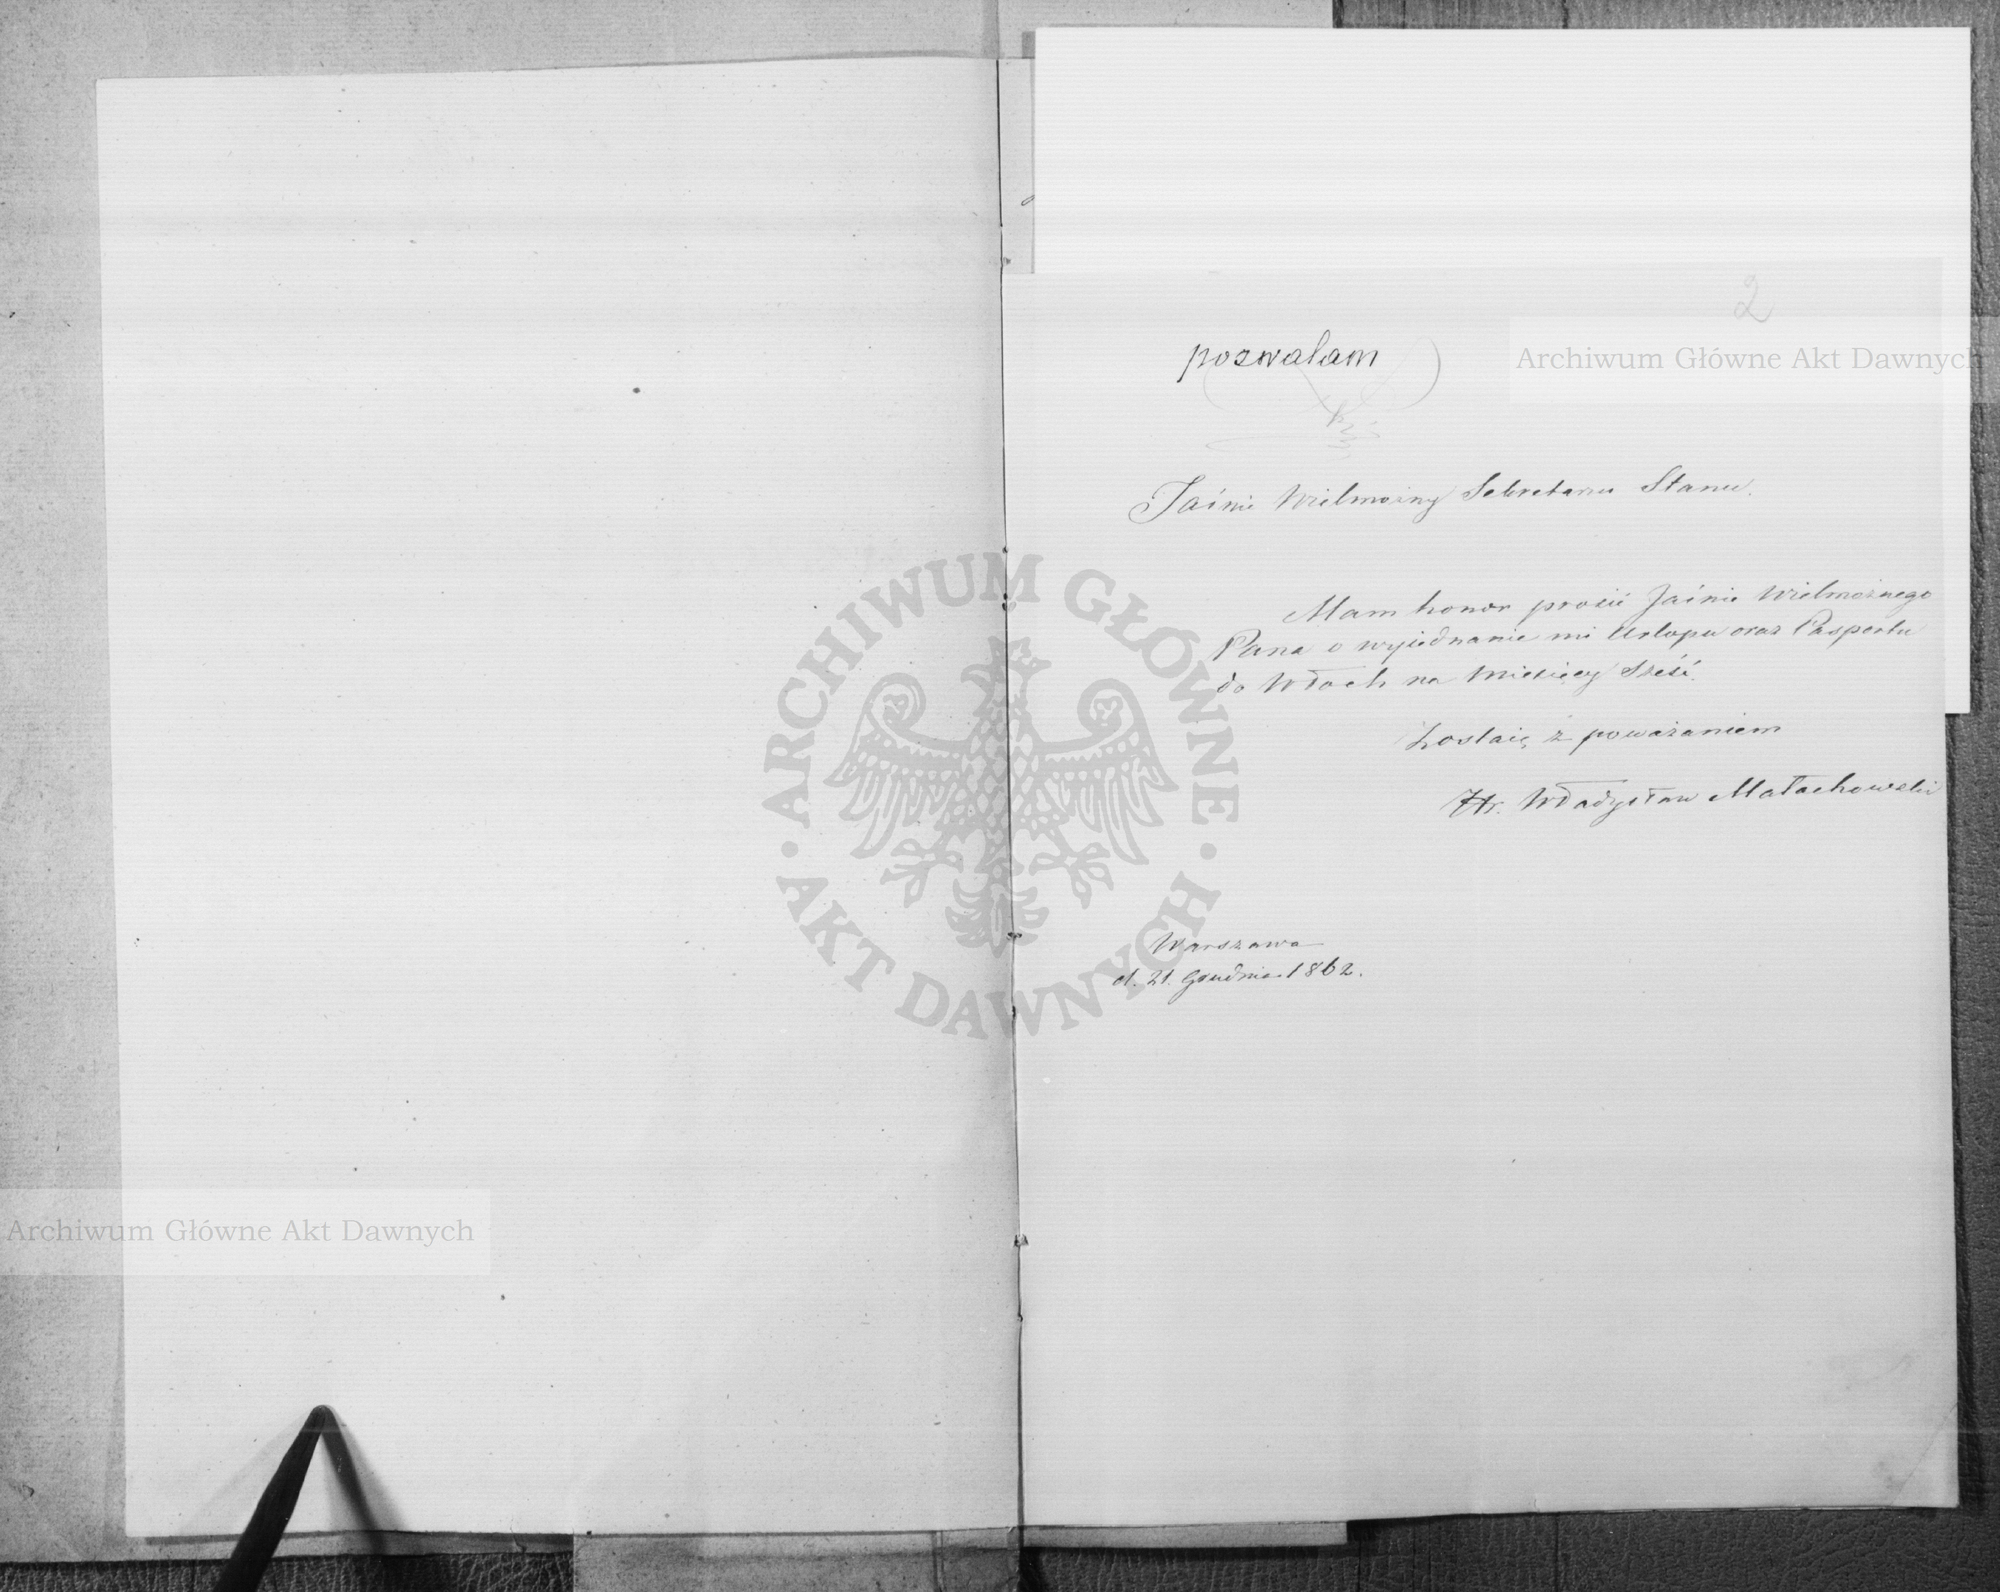 2
pozwalam
Jaśnie Wielmożny Sekretarzu Stanu.
Mam honor prosić Jaśnie Wielmożnego
Pana o wyiednanie mi Urlopu oraz Pasportu
do Włoch na Miesięcy Sześć.
Zostaię z poważaniem
Hr. Władysław Małachowski
Warszawa
d. 21. Grudnia 1862.
Archiwum Główne Akt Dawnych
Archiwum Główne Akt Dawnych
ARCHIWUM GŁÓWNE
AKT DAWNYCH